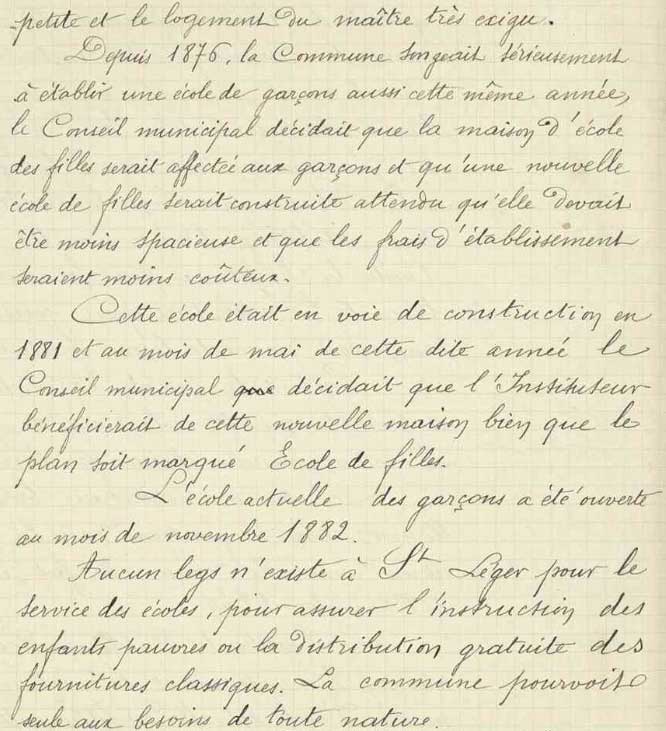 petite et le logement du maître très exigu.
Depuis 1876, la Commune songeait sérieusement
à établir une école de garçons aussi cette même année,
le Conseil municipal décidait que la maison d'école
des filles serait affectée aux garçons et qu'une nouvelle
école de filles serait construite attendu qu'elle devait
être moins spacieuse et que les frais d'établissement
seraient moins coûteux.
Cette école était en voie de construction en
1881 et au mois de mai de cette dite année le
Conseil municipal que décidait que l'Instituteur
bénéficierait de cette nouvelle maison bien que le
plan soit marqué École de filles.
L'école actuelle des garçons a été ouverte
au mois de novembre 1882.
Aucun legs n'existe à St Léger pour le
service des écoles, pour assurer l'instruction des
enfants pauvres ou la distribution gratuite des
fournitures classiques. La commune pourvoit
seule aux besoins de toute nature.